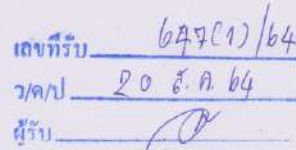 เลขที่รับ 647(1)/64
ว/ด/ป 20 ธ.ค. 64
ผู้รับ